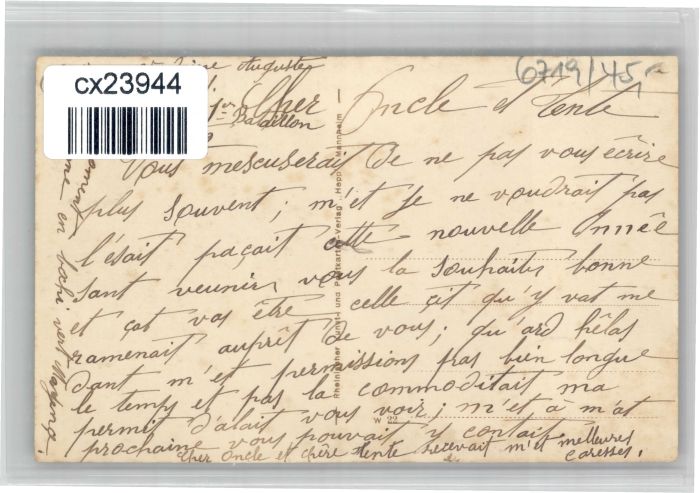 cx23944
6719/45,-
Auguste
1er Bataillon
Cher Oncle et Tente
Vous mescuserait de ne pas vous écrire
plus souvent; m'ét je ne voudrait pas
l'ésait paçait cette nouvelle Année
sant veunir vous la souhaiter bonne
et çat vas être celle çit qu'y vat me
ramenait auprêt de vous; qu'ard hêlas
dant m'et permissions pas bien longue
le temps et pas la commoditait ma
permit d'alait vous voir; m'et, à m'at
prochaine vous pouvait y contait.
Cher Oncle et chère Tente recevait m'et meilleures
caresses.
Rheinischer Kunst- und Postkarten-Verlag, Happ, Mannheim
W 22